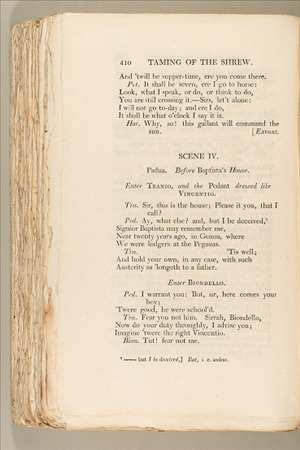 410 TAMING OF THE SHREW.
And 'twill be supper-time, ere you come there.
Pet. It shall be seven, ere I go to horse:
Look, what I speak, or do, or think to do,
You are still crossing it.—Sirs, let't alone:
I will not go to-day; and ere I do,
It shall be what o'clock I say it is.
Hor. Why, so! this gallant will command the
sun. [Exeunt.
SCENE IV.
Padua. Before Baptista's House.
Enter TRANIO, and the Pedant dressed like
VINCENTIO.
Tra. Sir, this is the house; Please it you, that I
call?
Ped. Ay, what else? and, but I be deceived,⁹
Signior Baptista may remember me,
Near twenty years ago, in Genoa, where
We were lodgers at the Pegasus.
Tra. 'Tis well;
And hold your own, in any case, with such
Austerity as 'longeth to a father.
Enter BIONDELLO.
Ped. I warrant you: But, sir, here comes your
boy;
'Twere good, he were school'd.
Tra. Fear you not him. Sirrah, Biondello,
Now do your duty throughly, I advise you;
Imagine 'twere the right Vincentio.
Bion. Tut! fear not me.
⁹ —— but I be deceived,] But, i. e. unless.